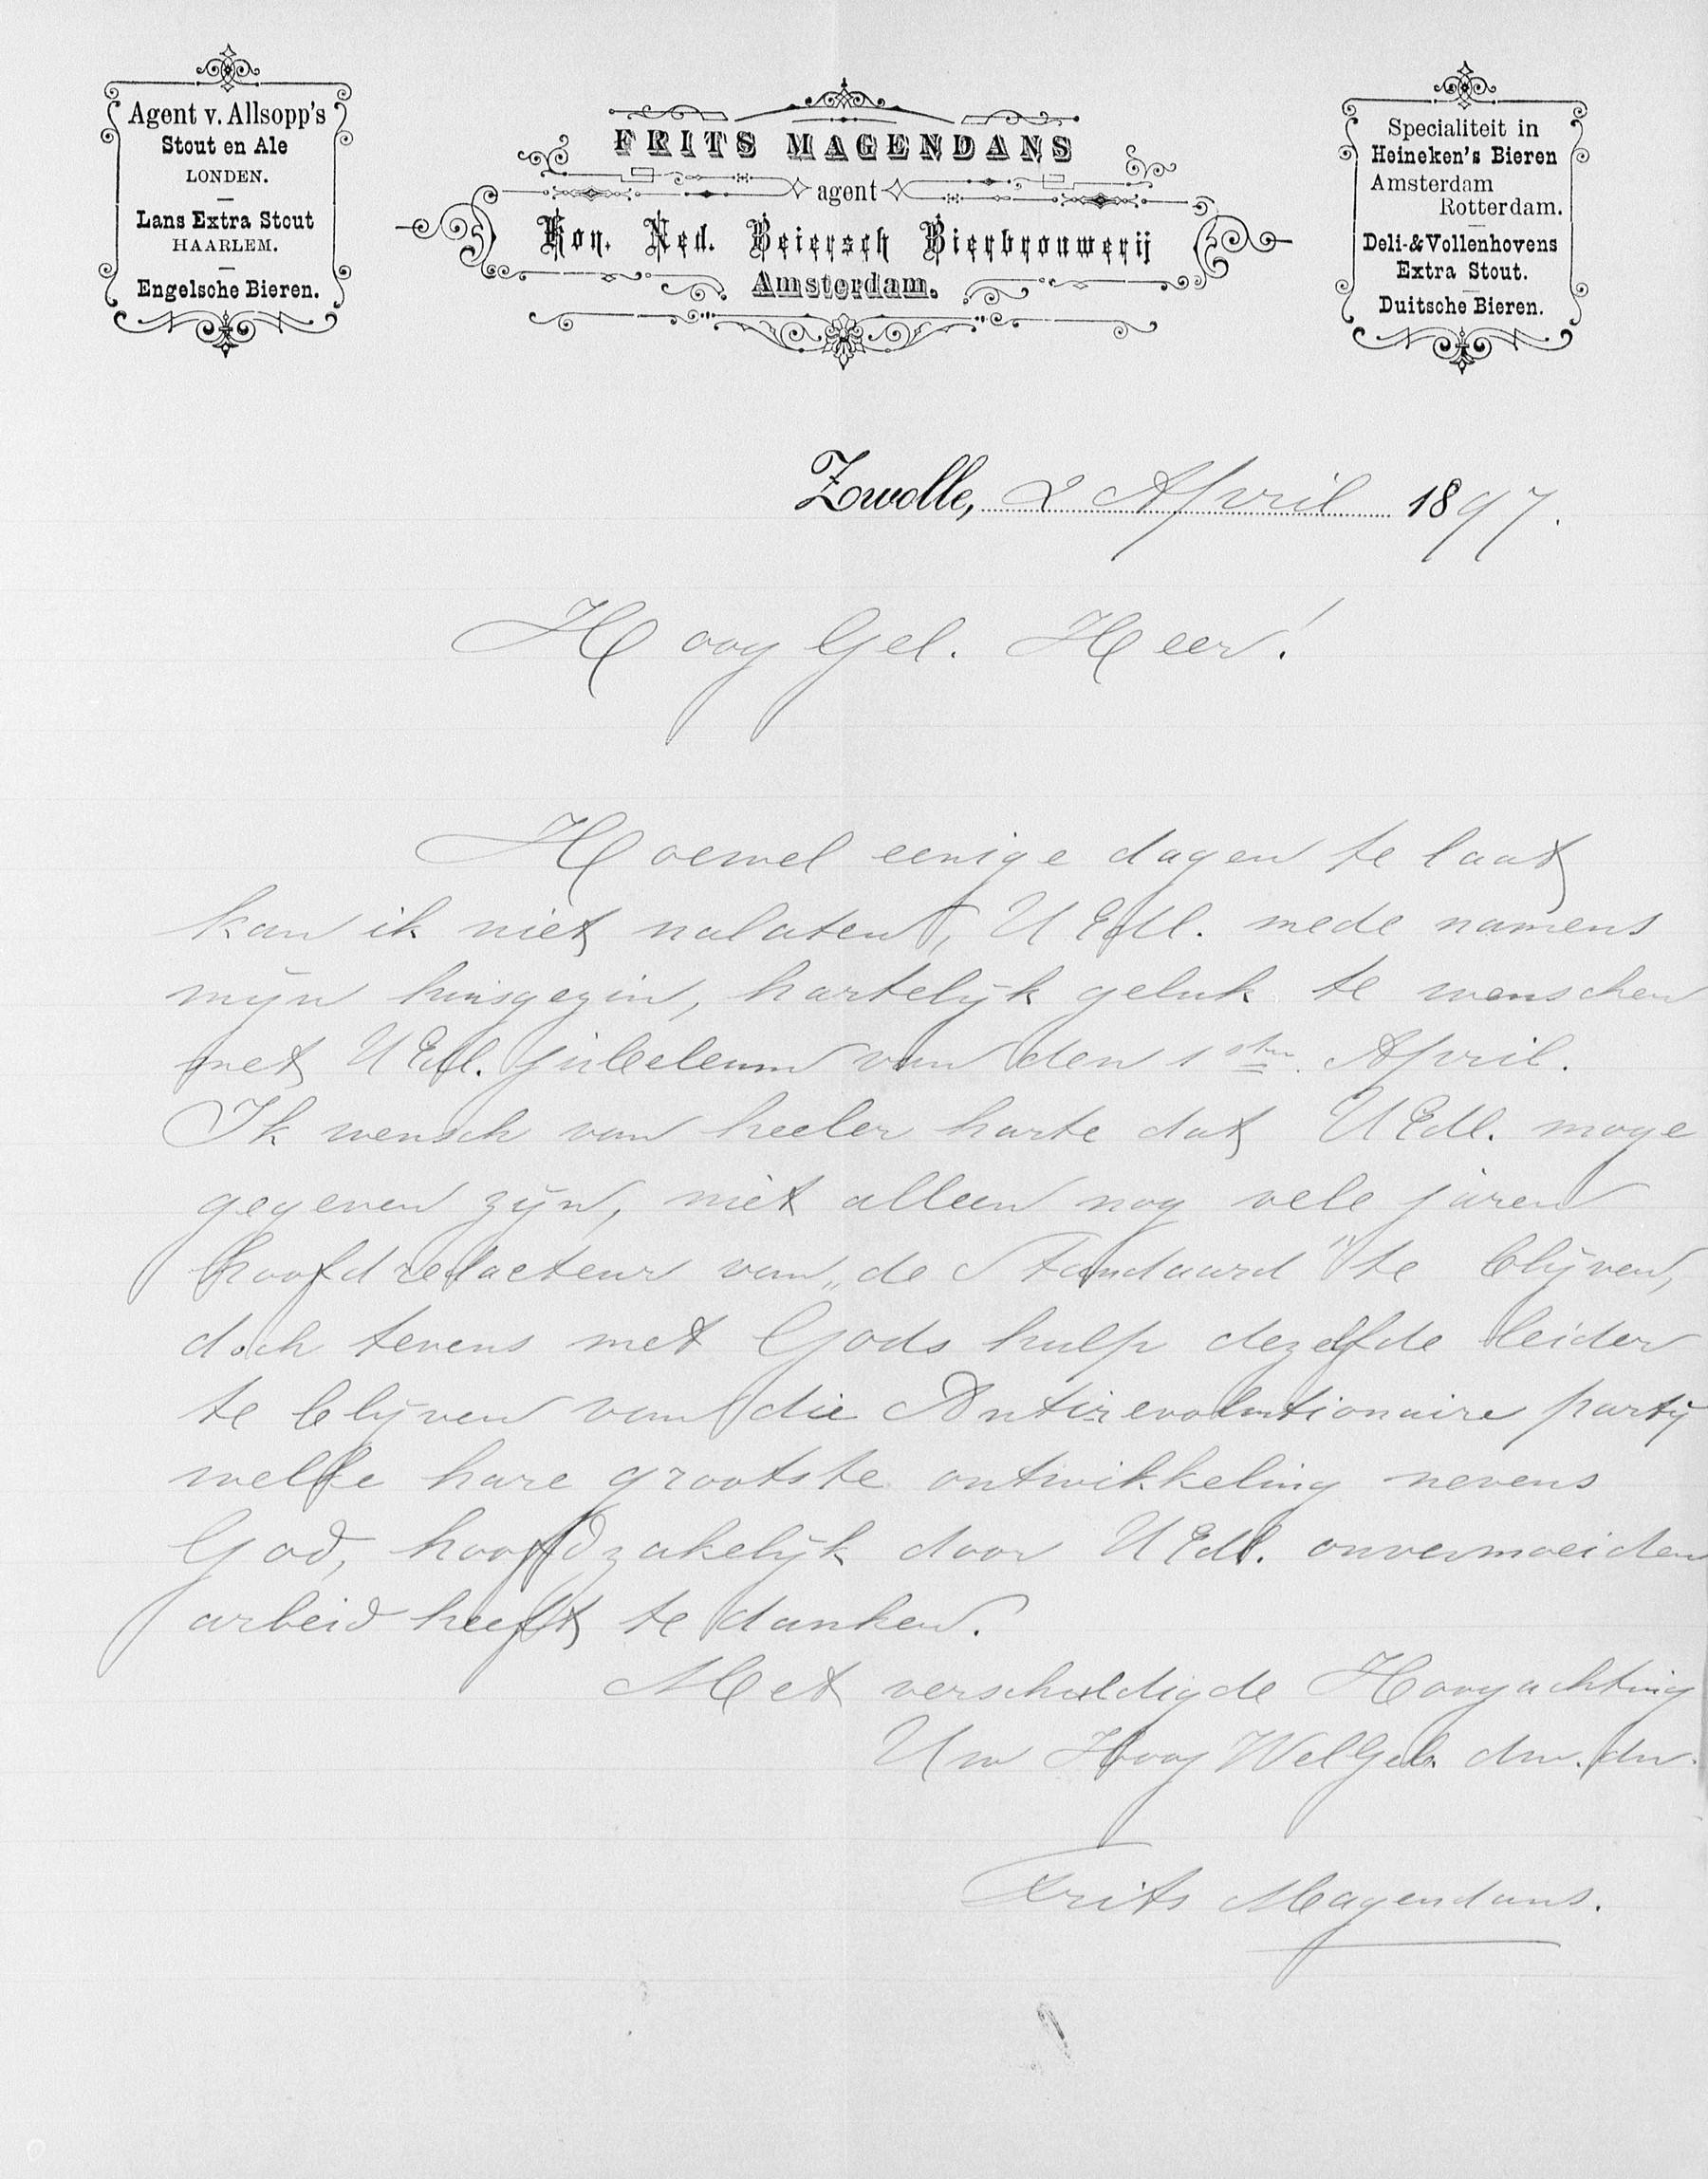 Agent v. Allsopp's
Stout en Ale
LONDEN.
Lans Extra Stout
HAARLEM.
Engelsche Bieren.
FRITS MAGENDANS
agent
Kon. Ned. Beiersch Bierbrouwerij
Amsterdam.
Specialiteit in
Heineken's Bieren
Amsterdam
Rotterdam.
Deli-&Vollenhovens
Extra Stout.
Duitsche Bieren.
Zwolle, 2 April 1897.
Hoog Gel. Heer!
Hoewel eenige dagen te laat
kan ik niet nalaten, UEdl. mede namens
mijn huisgezin, hartelijk geluk te wenschen
met UEdl. jubeleum van den 1sten April.
Ik wensch van heeler harte dat UEdl. moge
gegeven zijn, niet alleen nog vele jaren
hoofdredacteur van „de Standaard" te blijven,
doch tevens met Gods hulp dezelfde leider
te blijven van die Antirevolutionaire partij
welke hare grootste ontwikkeling nevens
God, hoofdzakelijk door UEdl. onvermoeiden
arbeid heeft te danken.
Met verschuldigde Hoogachting
Uw Hoog WelGeb. dw. dn.
Frits Magendans.